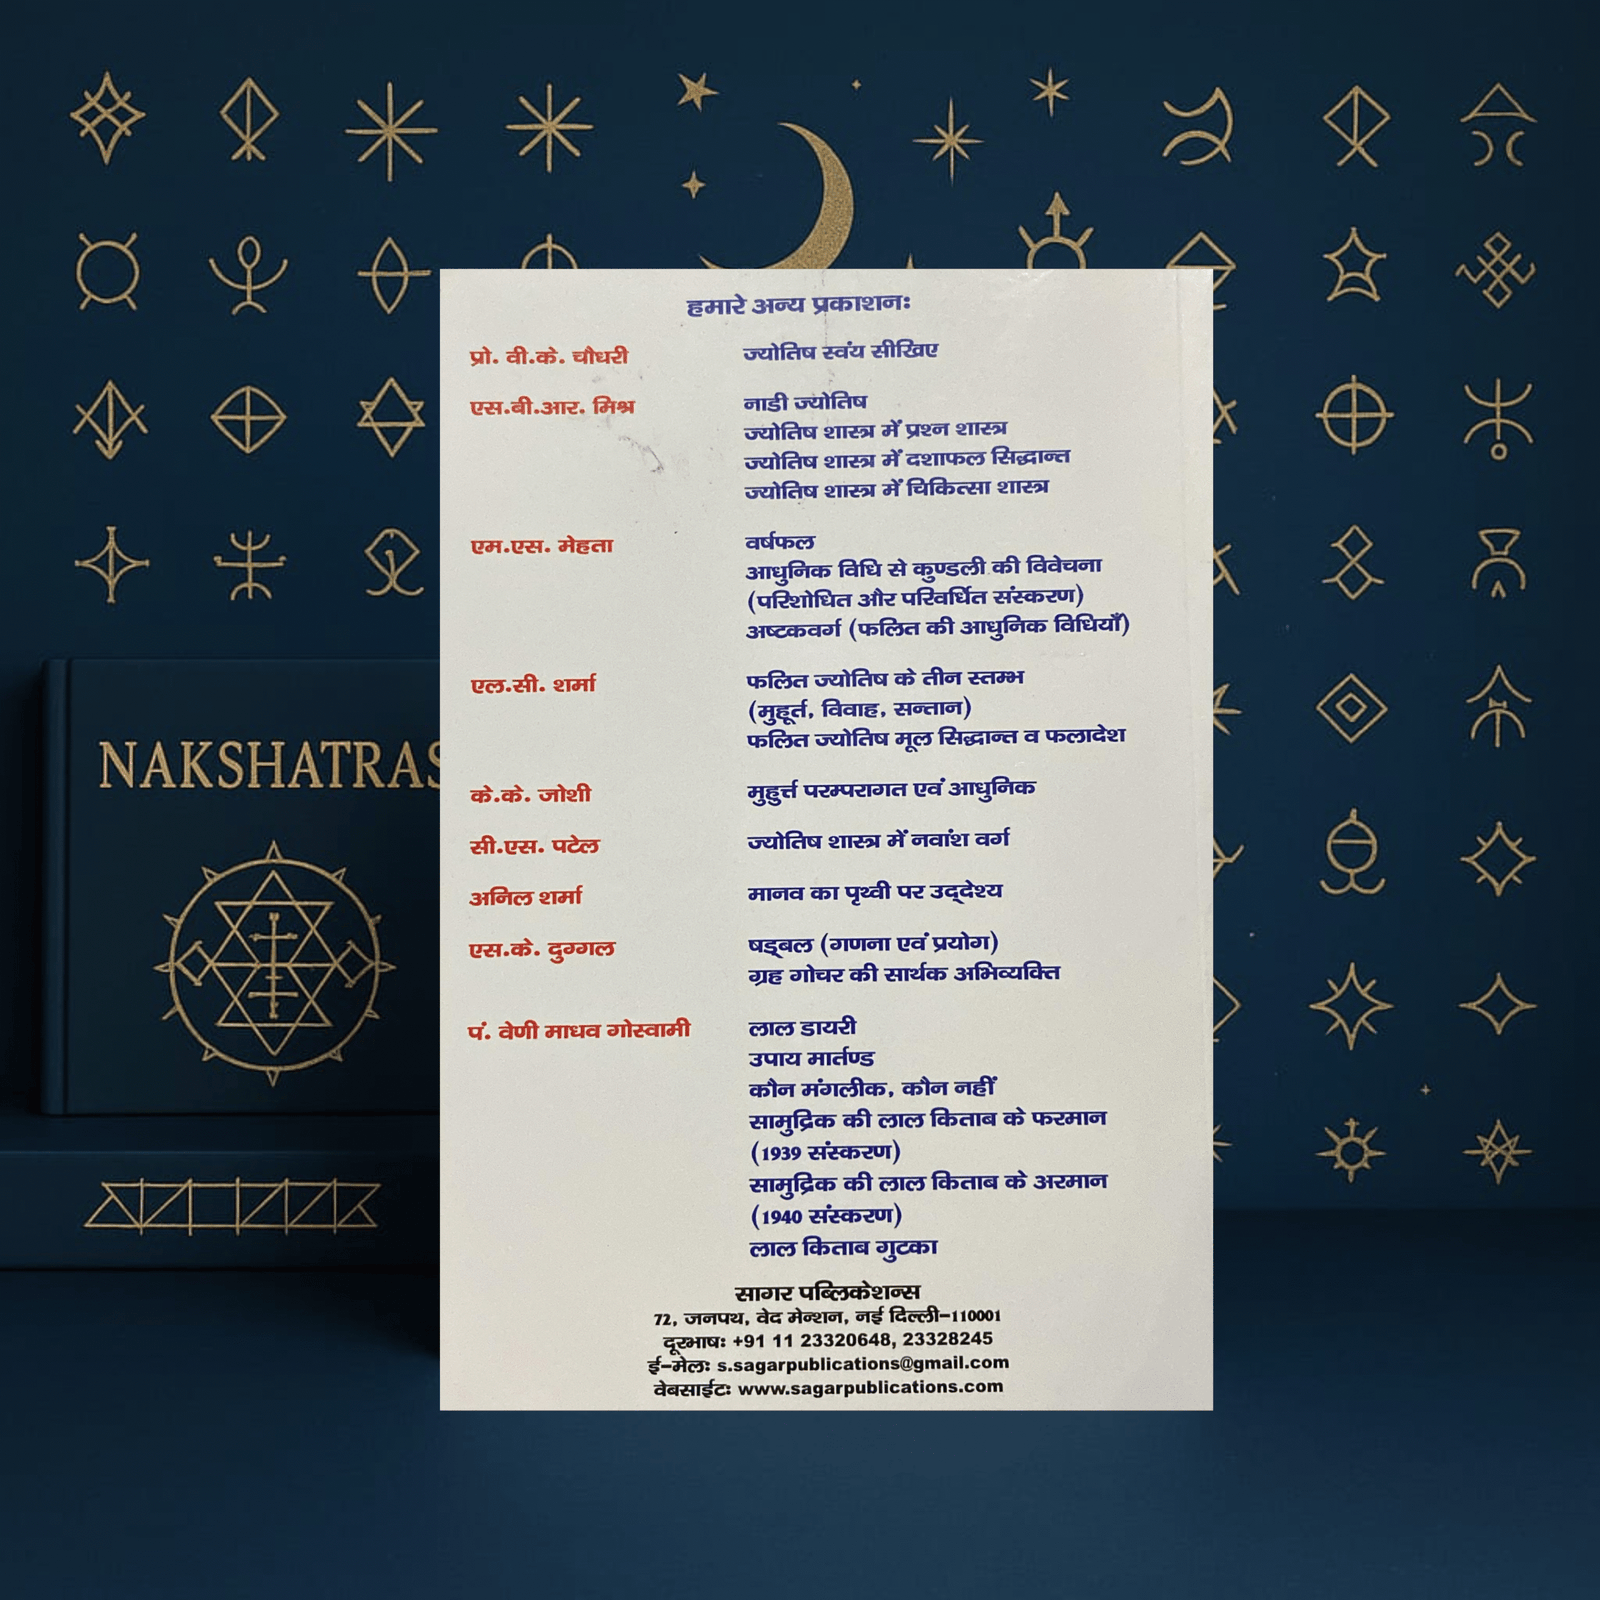 हमारे अन्य प्रकाशनः
प्रो. वी.के. चौधरी ज्योतिष स्वंय सीखिए
एस.बी.आर. मिश्र नाडी ज्योतिष
ज्योतिष शास्त्र में प्रश्न शास्त्र
ज्योतिष शास्त्र में दशाफल सिद्धान्त
ज्योतिष शास्त्र में चिकित्सा शास्त्र
एम.एस. मेहता वर्षफल
आधुनिक विधि से कुण्डली की विवेचना
(परिशोधित और परिवर्धित संस्करण)
अष्टकवर्ग (फलित की आधुनिक विधियाँ)
एल.सी. शर्मा फलित ज्योतिष के तीन स्तम्भ
(मुहूर्त, विवाह, सन्तान)
फलित ज्योतिष मूल सिद्धान्त व फलादेश
के.के. जोशी मुहुर्त्त परम्परागत एवं आधुनिक
सी.एस. पटेल ज्योतिष शास्त्र में नवांश वर्ग
अनिल शर्मा मानव का पृथ्वी पर उद्‌देश्य
एस.के. दुग्गल षड्‌बल (गणना एवं प्रयोग)
ग्रह गोचर की सार्थक अभिव्यक्ति
पं. वेणी माधव गोस्वामी लाल डायरी
उपाय मार्तण्ड
कौन मंगलीक, कौन नहीं
सामुद्रिक की लाल किताब के फरमान
(1939 संस्करण)
सामुद्रिक की लाल किताब के अरमान
(1940 संस्करण)
लाल किताब गुटका
सागर पब्लिकेशन्स
72, जनपथ, वेद मेन्शन, नई दिल्ली-110001
दूरभाषः +91 11 23320648, 23328245
ई-मेलः s.sagarpublications@gmail.com
वेबसाईटः www.sagarpublications.com
NAKSHATRAS